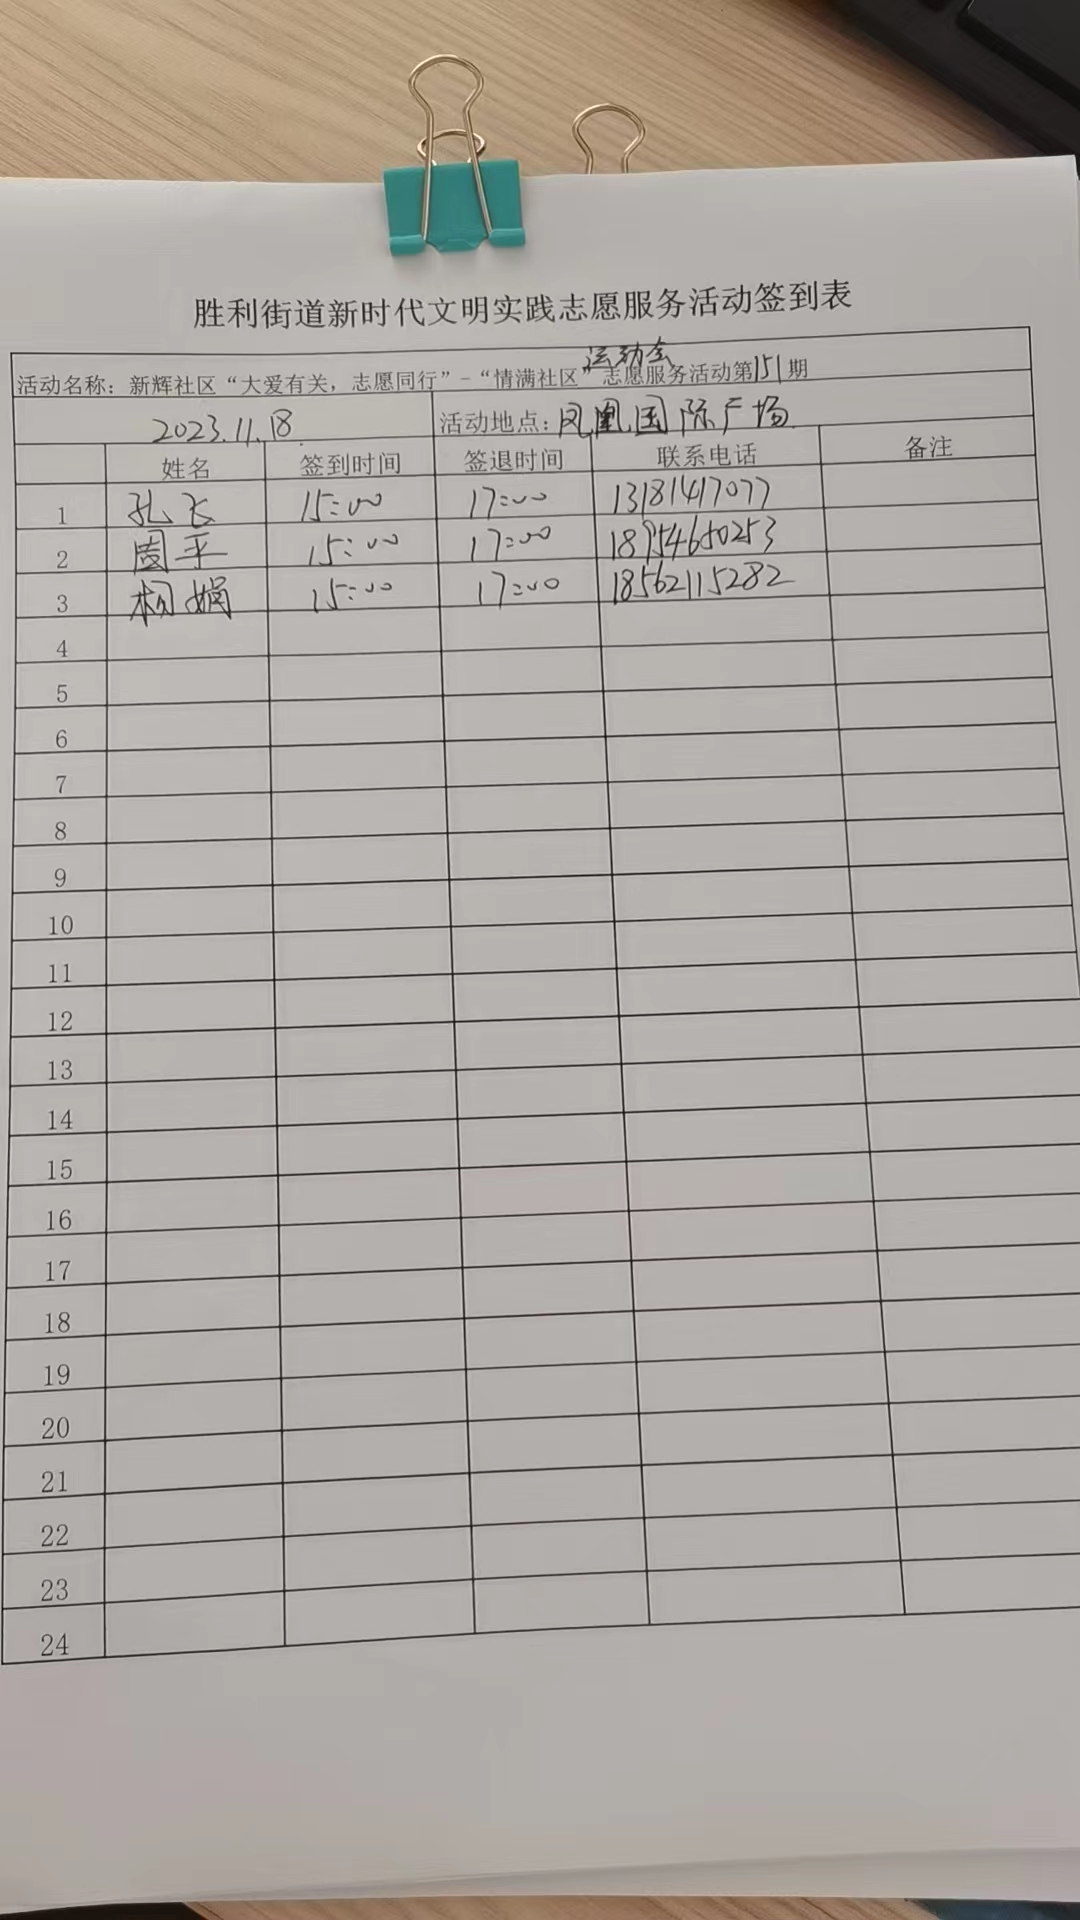 胜利街道新时代文明实践志愿服务活动签到表
运动会
活动名称：新辉社区“大爱有关，志愿同行”-“情满社区”志愿服务活动第151期
2023.11.18 活动地点：凤凰国际广场
姓名 签到时间 签退时间 联系电话 备注
1 孔飞 15:00 17:00 13181417077
2 周平 15:00 17:00 18954650253
3 杨娟 15:00 17:00 18562115282
4
5
6
7
8
9
10
11
12
13
14
15
16
17
18
19
20
21
22
23
24